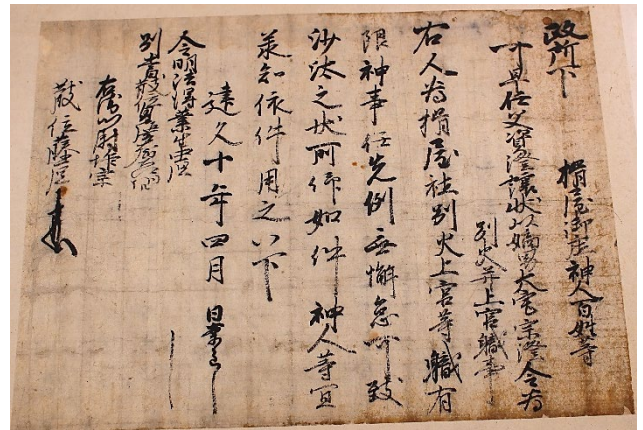 政所下 揖屋御庄神人百姓等
可早任父資澄譲状以嫡男大宅宗澄令為
別火并上官職事
右人為揖屋社別火上官等職有
限神事任先例無懈怠可致
沙汰之状所仰如件神人等宜
承知依件用之以下
建久十年四月 日案主
令明法得業生
別当散位
右衛門尉惟宗
蔵位藤原